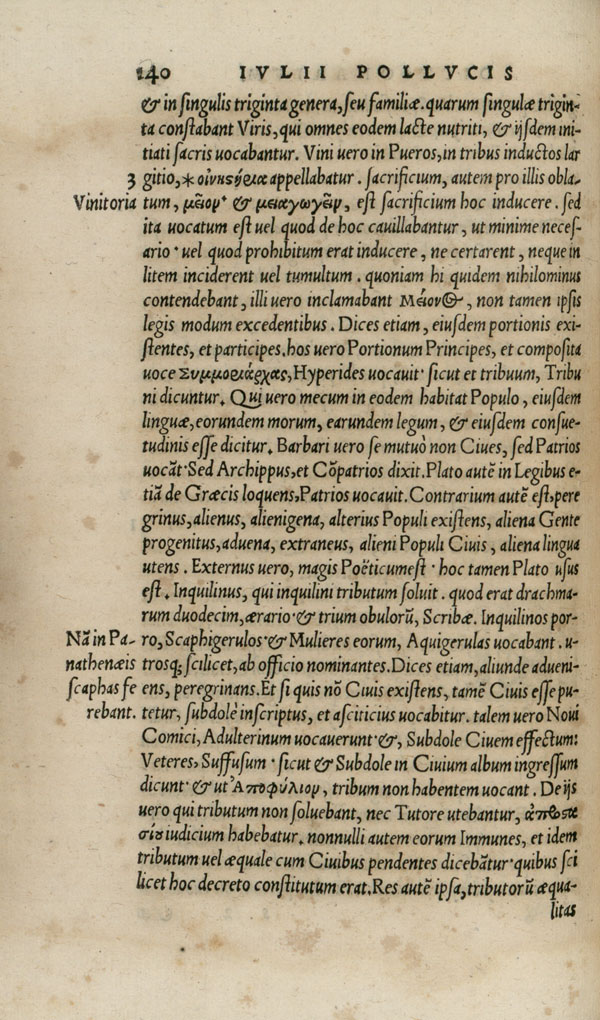 240 IVLII POLLVCIS
& in singulis triginta genera, seu familiæ. quarum singulæ trigin-
ta constabant Viris, qui omnes eodem lacte nutriti, & ijsdem ini-
tiati sacris uocabantur. Vini uero in Pueros, in tribus inductos lar
3 gitio, * οἰνιστήρια appellabatur. sacrificium, autem pro illis obla-
Vinitoria tum, μεῖον· & μειαγωγεῖν, est sacrificium hoc inducere. sed
ita uocatum est uel quod de hoc cauillabantur, ut minime neces-
ario· uel quod prohibitum erat inducere, ne certarent, neque in
litem inciderent uel tumultum. quoniam hi quidem nihilominus
contendebant, illi uero inclamabant Μεῖονος, non tamen ipsis
legis modum excedentibus. Dices etiam, eiusdem portionis exi-
stentes, et participes. hos uero Portionum Principes, et composita
uoce Συμμοριάρχας, Hyperides uocauit· sicut et tribuum, Tribu
ni dicuntur. Qui uero mecum in eodem habitat Populo, eiusdem
linguæ, eorundem morum, earundem legum, & eiusdem consue-
tudinis esse dicitur. Barbari uero se mutuò non Ciues, sed Patrios
uocāt· Sed Archippus, et Cōpatrios dixit. Plato autē in Legibus e-
tiā de Græcis loquens, Patrios uocauit. Contrarium autē est, pere
grinus, alienus, alienigena, alterius Populi existens, aliena Gente
progenitus, aduena, extraneus, alieni Populi Ciuis, aliena lingua
utens. Externus uero, magis Poëticumest· hoc tamen Plato usus
est. Inquilinus, qui inquilini tributum soluit. quod erat drachma-
rum duodecim, ærario· & trium obulorū, Scribæ. Inquilinos por-
Nā in Pa- ro, Scaphigerulos· & Mulieres eorum, Aquigerulas uocabant. u-
nathenæis trosq; scilicet, ab officio nominantes. Dices etiam, aliunde adueni-
scaphas fe ens, peregrinans. Et si quis nō Ciuis existens, tamē Ciuis esse pu-
rebant. tetur, subdole inscriptus, et asciticius uocabitur. talem uero Noui
Comici, Adulterinum uocauerunt· &, Subdole Ciuem effectum:
Veteres, Suffusum· sicut & Subdole in Ciuium album ingressum
dicunt· & ut Ἀποφύλιον, tribum non habentem uocant. De ijs
uero qui tributum non soluebant, nec Tutore utebantur, ἀπροστα
σίου iudicium habebatur. nonnulli autem eorum Immunes, et idem
tributum uel æquale cum Ciuibus pendentes dicebātur· quibus sci
licet hoc decreto constitutum erat. Res autē ipsa, tributorū æqua-
litas